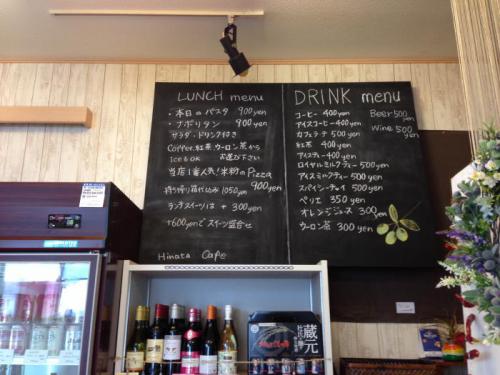 LUNCH menu
・本日のパスタ 900yen
・ナポリタン 900yen
サラダ・ドリンク付き
Coffee、紅茶、ウーロン茶から
Ice も OK お選び下さい
当店1番人気!米粉のPizza
900yen
持ち帰り箱代込み1050yen
ランチスイーツは + 300yen
+600yenで スイーツ盛合せ
Hinata Cafe
DRINK menu
コーヒー 400yen
アイスコーヒー 400yen
カフェラテ 500yen
紅茶 400yen
アイスティー 400yen
ロイヤルミルクティー 500yen
アイスミルクティー 500yen
スパイシーチャイ 500yen
ペリエ 350yen
オレンジジュース 300yen
ウーロン茶 300yen
Beer 500yen
Wine 500yen
蔵元